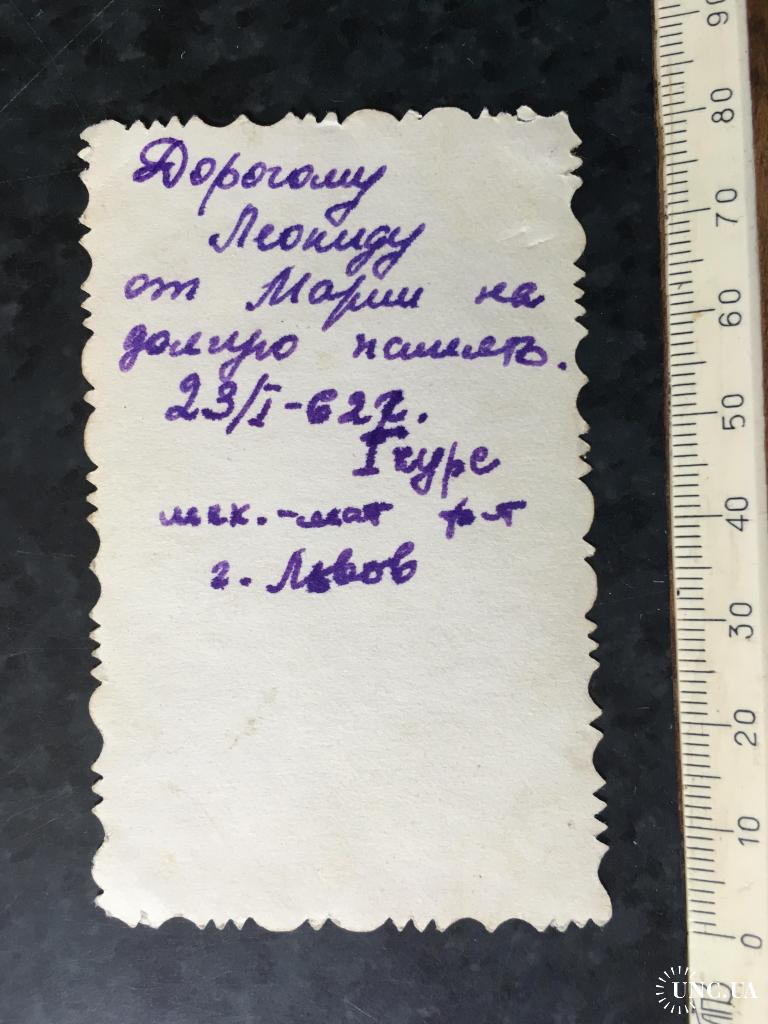 Дорогому
Леониду
от Марии на
долгую память.
23/I-62г.
I курс
мех.-мат ф-т
г. Львов
90
80
70
60
50
40
30
20
10
0
UNC.UA